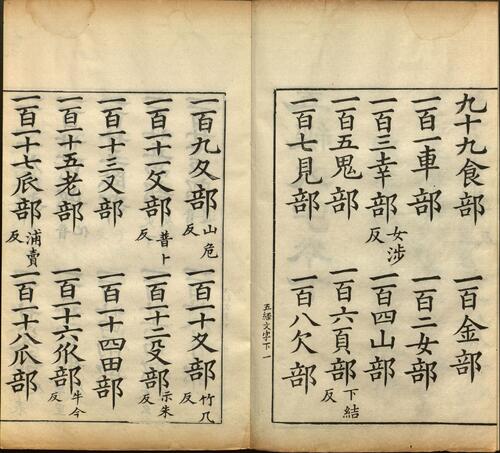 九十九食部 一百金部
一百一車部 一百二女部
一百三幸部女涉反 一百四山部
一百五鬼部 一百六頁部下結反
一百七見部 一百八欠部
五經文字下 一
一百九夂部山危反 一百一十夊部竹几反
一百一十一攵部普卜反 一百一十二殳部示朱反
一百一十三又部 一百一十四田部
一百一十五老部 一百一十六㐺部牛今反
一百一十七𠂢部浦賣反 一百一十八爪部